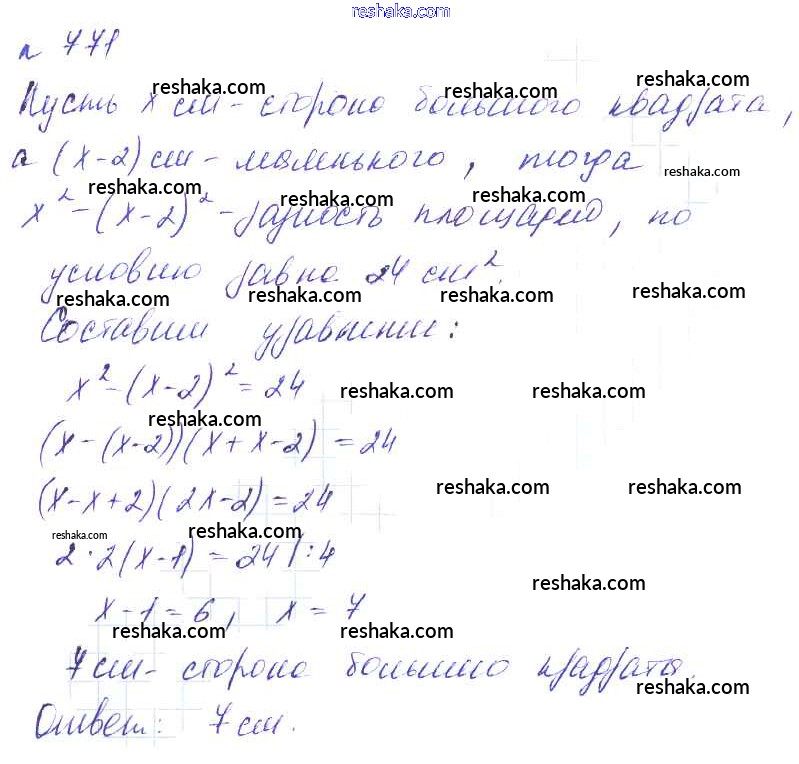 reshaka.com
n 771
reshaka.com reshaka.com
reshaka.com
Пусть x см - сторона большого квадрата,
а (x-2) см - маленького, тогда
reshaka.com
reshaka.com reshaka.com reshaka.com
x² - (x-2)² - разность площадей, по
условию равна 24 см².
reshaka.com reshaka.com reshaka.com reshaka.com
Составим уравнение:
x² - (x-2)² = 24
reshaka.com reshaka.com reshaka.com
(x - (x-2))(x + x - 2) = 24
(x - x + 2)(2x - 2) = 24
reshaka.com reshaka.com
reshaka.com reshaka.com
2 · 2(x-1) = 24 | : 4
reshaka.com
x - 1 = 6, x = 7
reshaka.com reshaka.com
7 см - сторона большого квадрата.
reshaka.com
Ответ: 7 см.